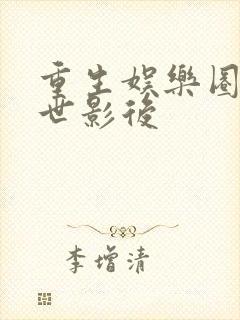 重生娛樂圈
世影後
李增清